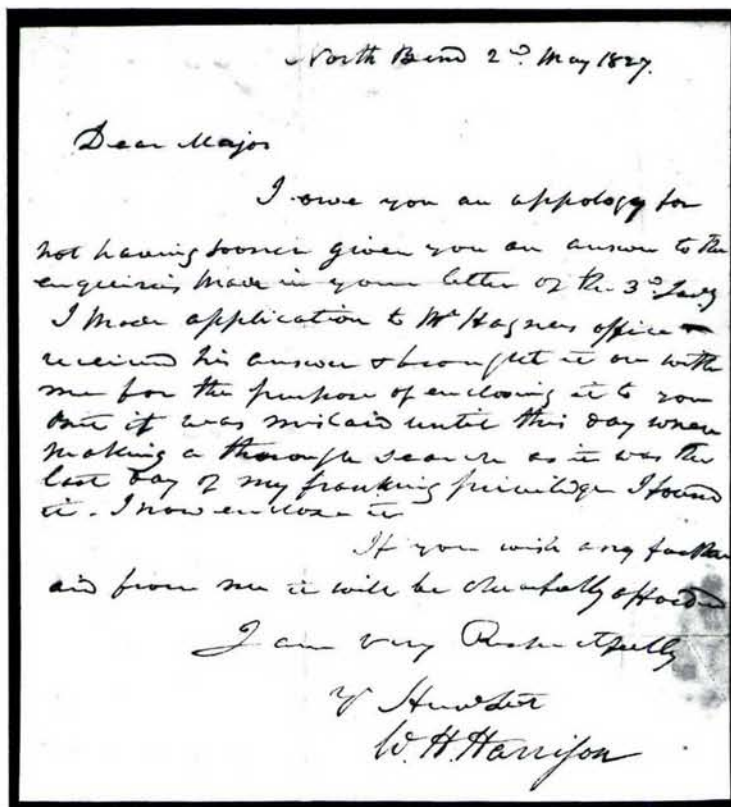 North Bend 2d May 1827.
Dear Major
I owe you an appology for
not having sooner given you an answer to the
enquiries made in your letter of the 3d
I made application to Mr Hagners office &
received his answer & brought it on with
me for the purpose of enclosing it to you
but it was mislaid until this day when
making a thorough search as it was the
last day of my franking priviledge I found
it. I now enclose it
If you wish any further
aid from me it will be cheerfully afforded
I am very Respectfully
yr Humb Svt
W. H. Harrison